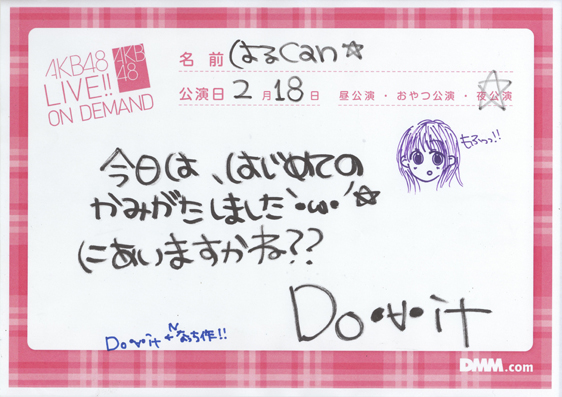 AKB48
LIVE!!
ON DEMAND
AKB
48
名 前 はるCan☆
公演日 2 月 18 日 昼公演 ・ おやつ公演 ・ 夜公演
もふっっ!!
今日は、はじめての
かみがたしました`・ω・´☆
にあいますかね??
Do・∀・it
Do・∀・it ← なっち作!!
DMM.com